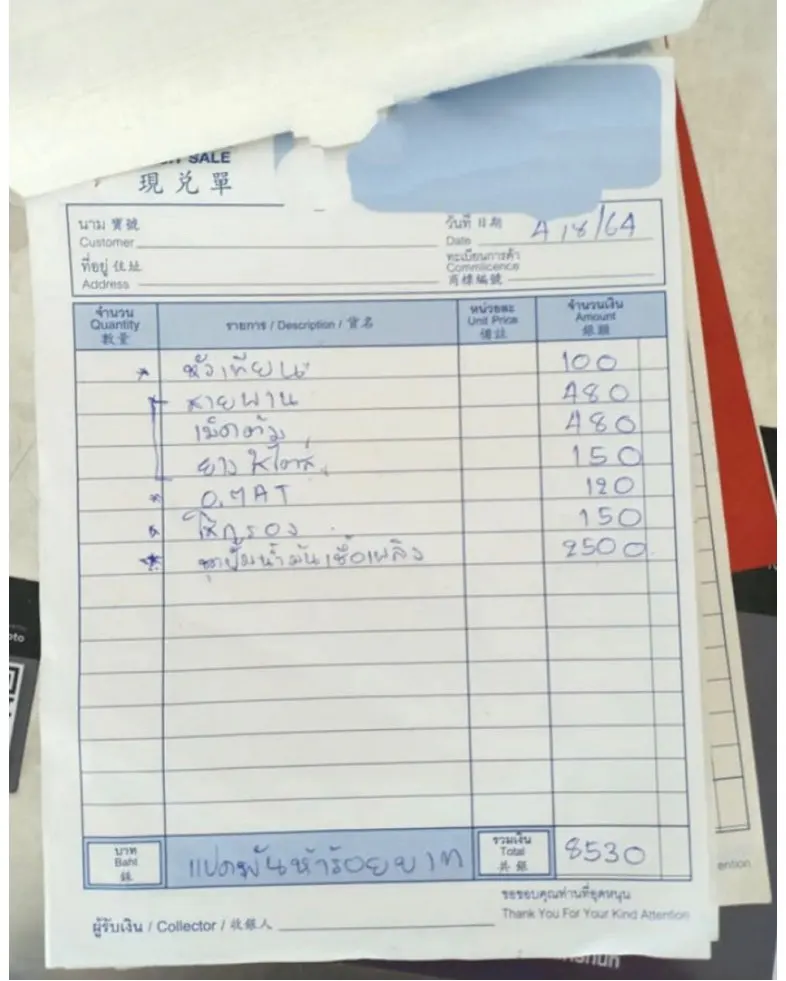 SALE
現兑單
นาม 寶號
Customer
วันที่ 日期
Date 4/8/64
ที่อยู่ 住址
Address
ทะเบียนการค้า
Commlicence
商標編號
จำนวน Quantity 數量 รายการ / Description / 貨名 หน่วยละ Unit Price 備註 จำนวนเงิน Amount 銀額
หัวเทียน 100
สายพาน 480
เม็ดตุ้ม 480
ยาง 150
O.MAT 120
ไส้กรอง 150
ชุดปั๊มน้ำมันเชื้อเพลิง 2500
บาท Baht 銖 แปดพันห้าร้อยบาท รวมเงิน Total 共銀 8530
ขอขอบคุณท่านที่อุดหนุน
Thank You For Your Kind Attention
ผู้รับเงิน / Collector / 收銀人
ention